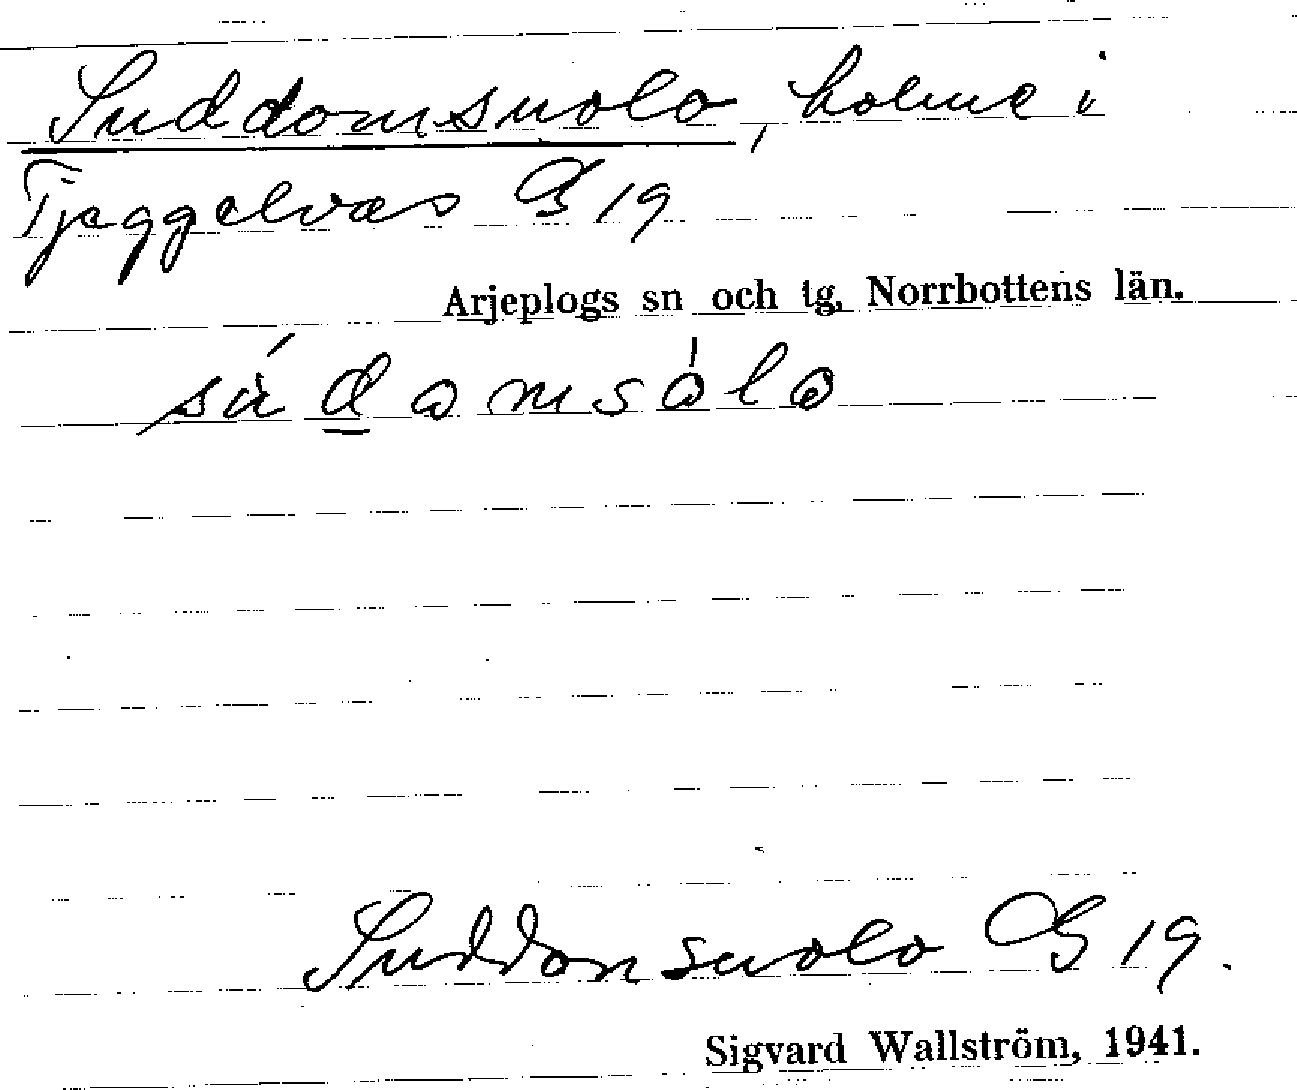 Suddomsuolo, holme i
Tjeggelvas G 19
Arjeplogs sn och tg, Norrbottens län.
sὰ́d̲omsȯ́lo
Suddonsuolo G 19.
Sigvard Wallström, 1941.